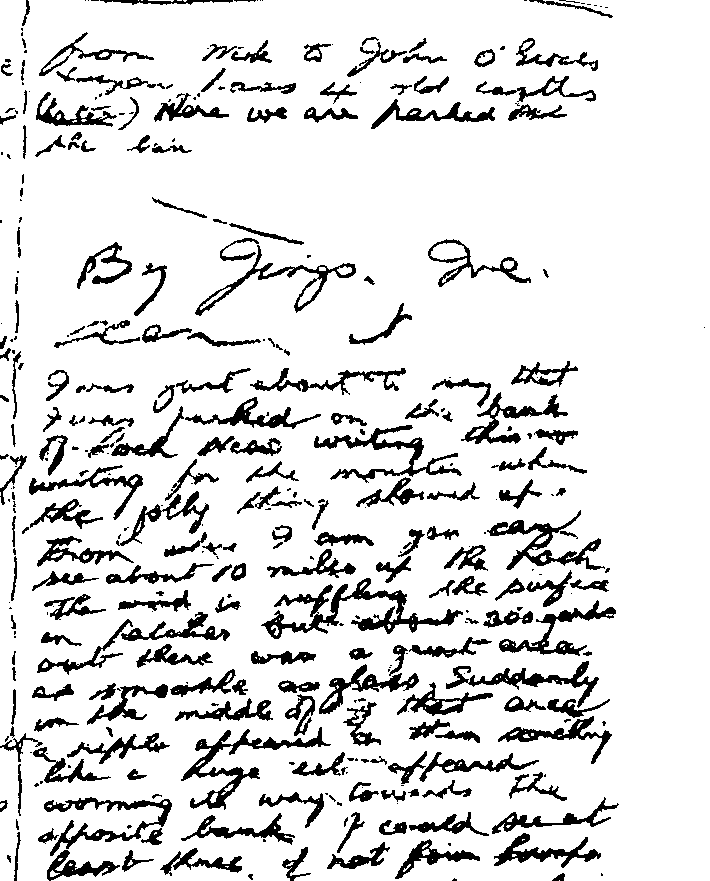 from Wick to John O'Groats
pass 4 old castles
(Later) Here we are parked
the ban
By Jingo. I've
seen it
I was just about to say that
I was parked on the bank
of Loch Ness writing this
waiting for the monster when
the jolly thing showed up.
From where I am you can
see about 10 miles up the Loch.
The wind is ruffling the surface
in patches but about 300 yards
out there was a quiet area
as smooth as glass. Suddenly
in the middle of that area
a ripple appeared then something
like a huge eel appeared
worming its way towards the
opposite bank. I could see at
least three, if not four humps